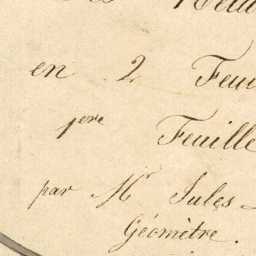 en 2 Feui
1ère Feuille
par Mr Jules
Géomètre.